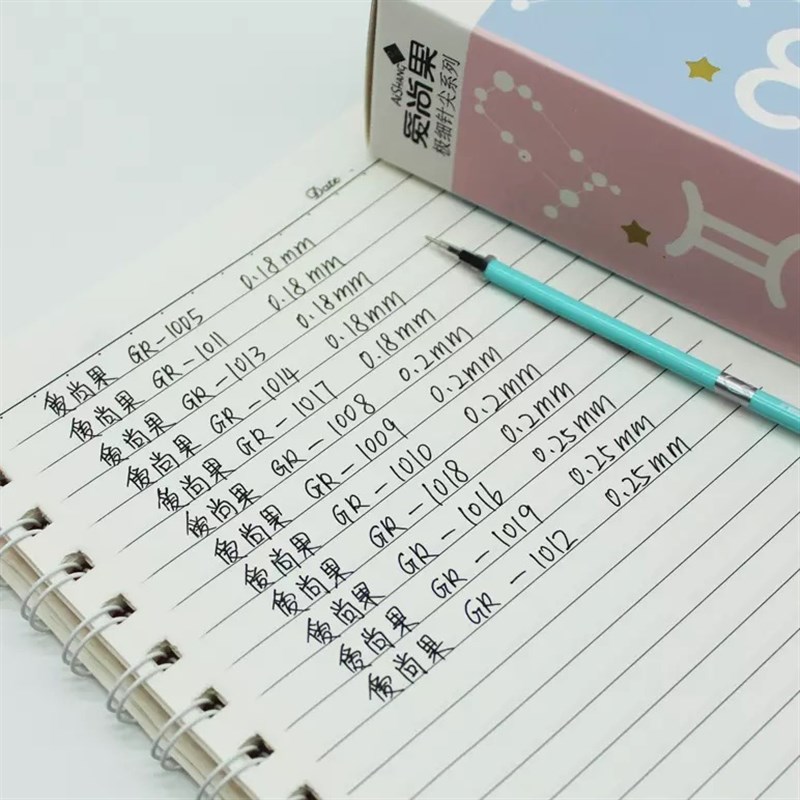 AiSHANG
爱尚果
极细针尖系列
Date
爱尚果 GR-1005 0.18mm
爱尚果 GR-1011 0.18mm
爱尚果 GR-1013 0.18mm
爱尚果 GR-1014 0.18mm
爱尚果 GR-1017 0.18mm
爱尚果 GR-1008 0.2mm
爱尚果 GR-1009 0.2mm
爱尚果 GR-1010 0.2mm
爱尚果 GR-1018 0.2mm
爱尚果 GR-1016 0.25mm
爱尚果 GR-1019 0.25mm
爱尚果 GR-1012 0.25mm